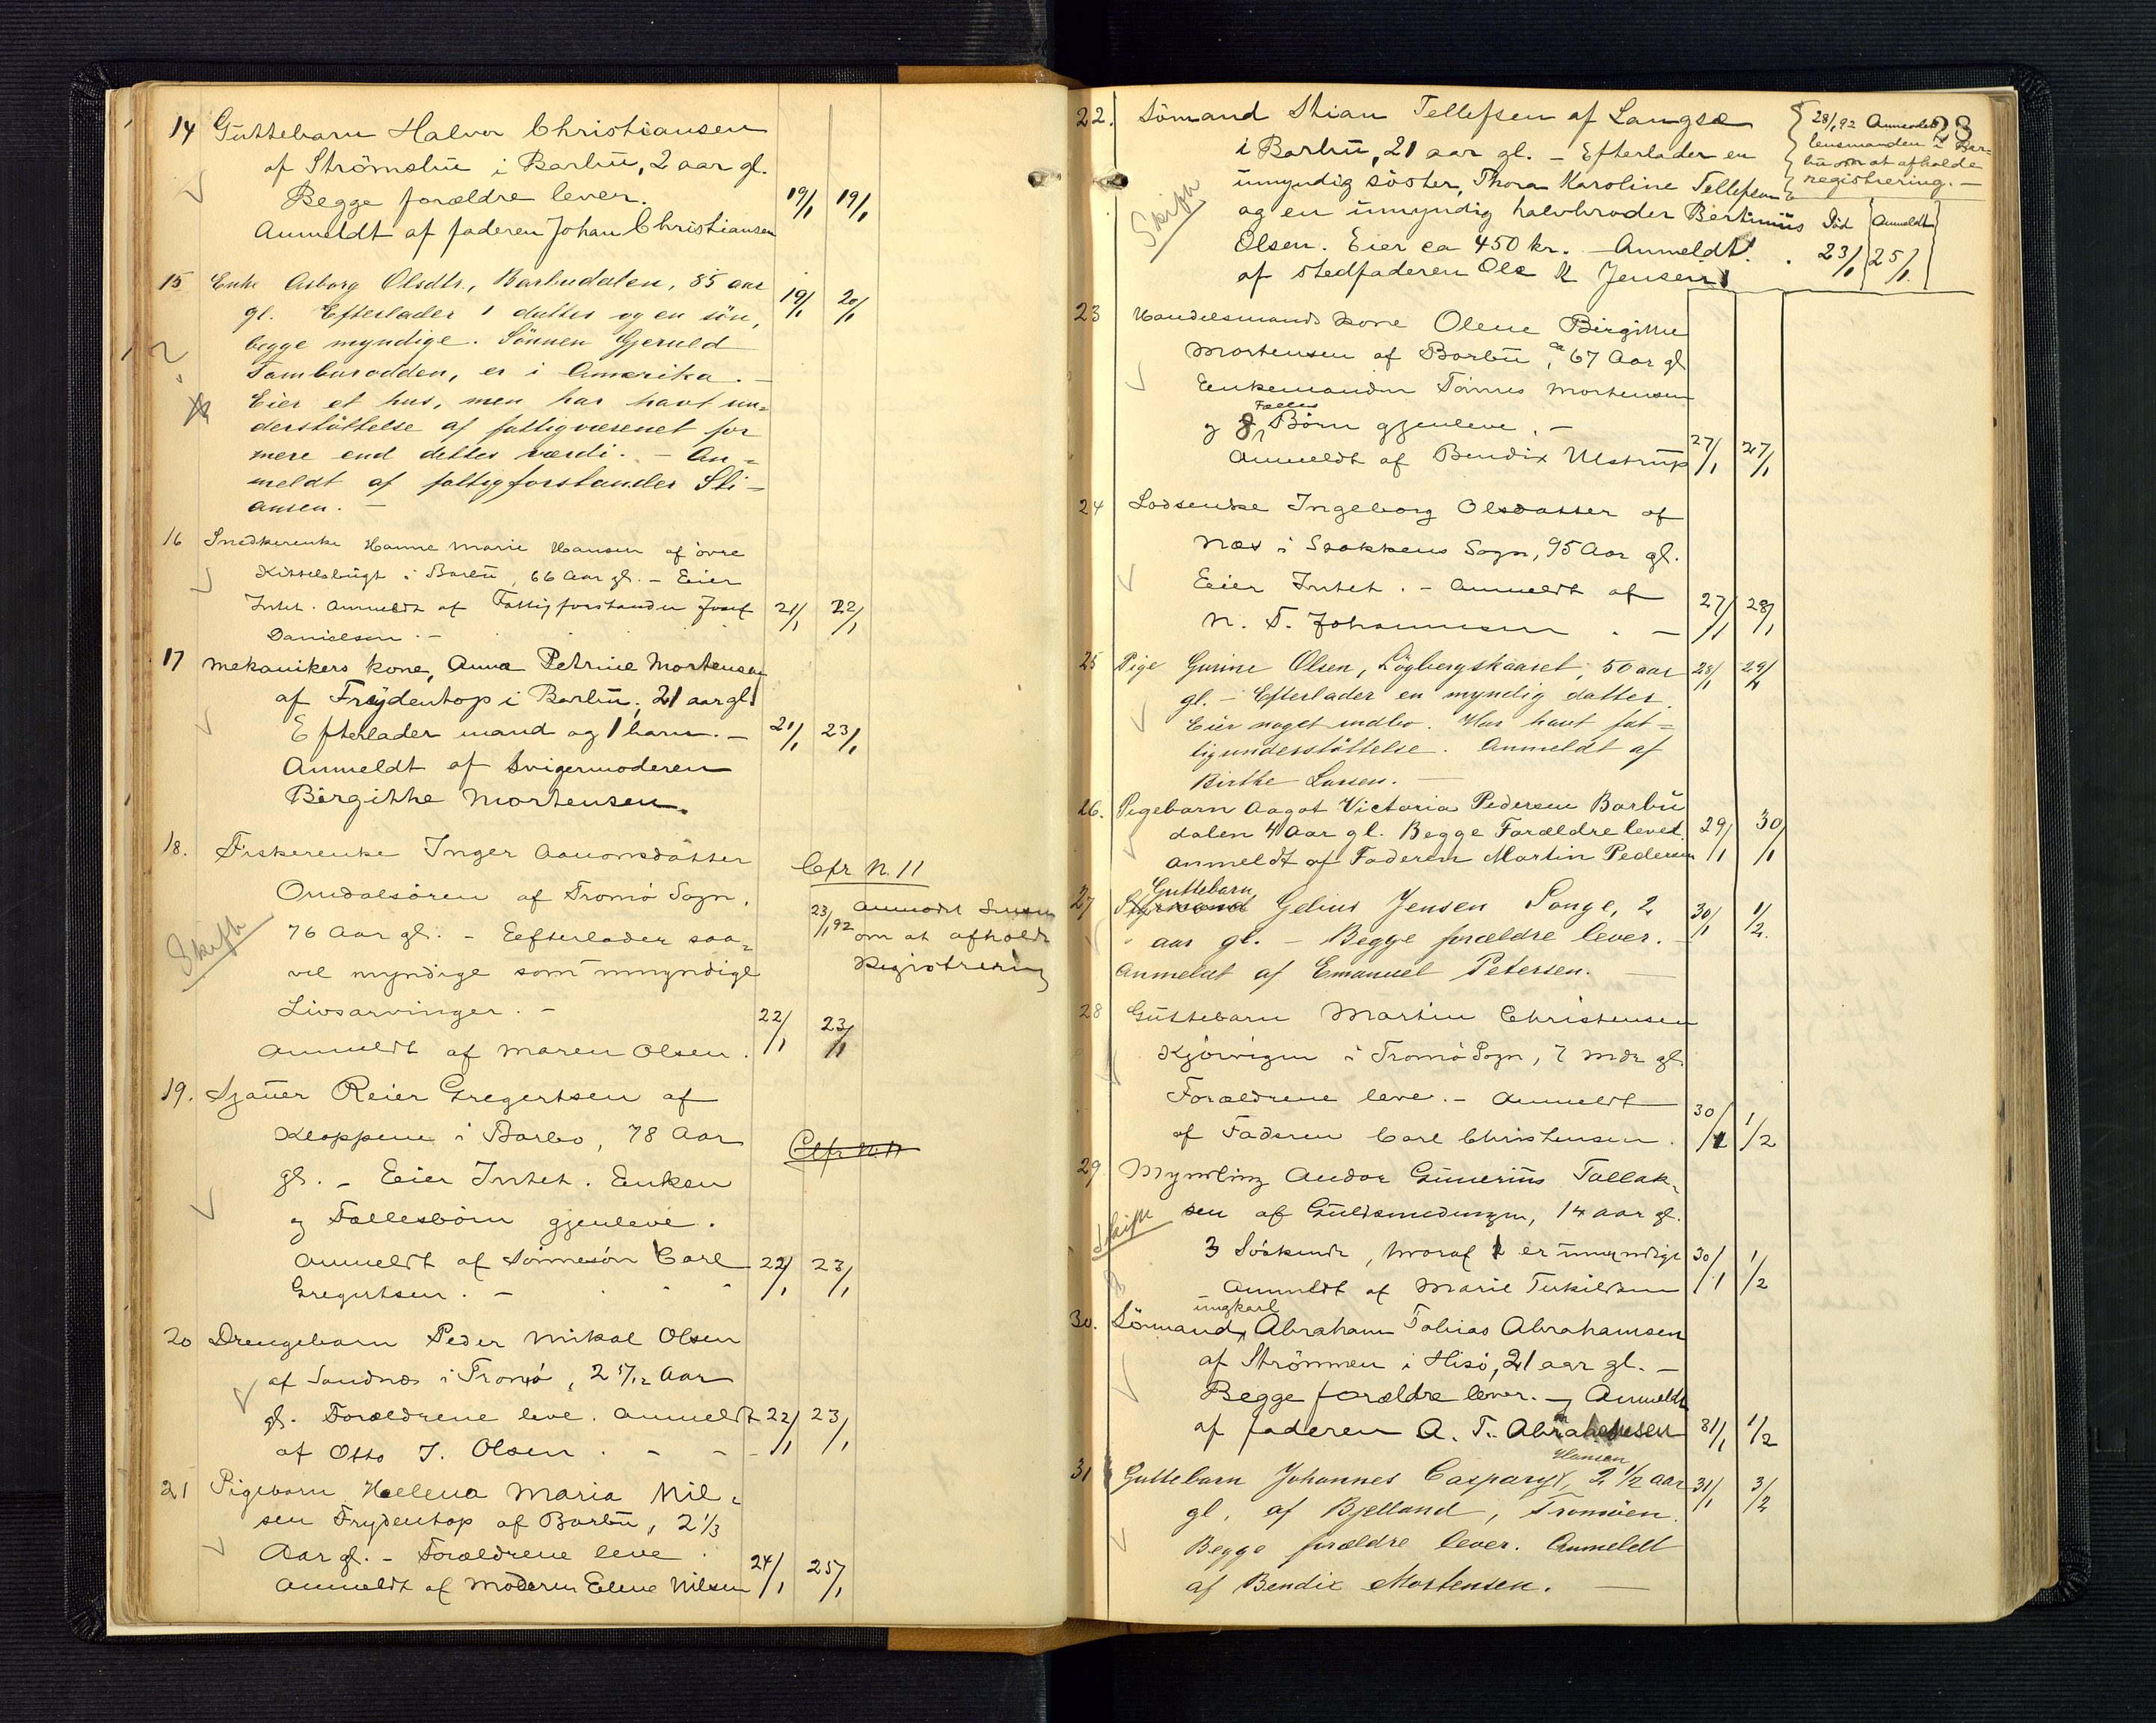 14 Guttebarn Halvor Christiansen
af Strömsbu i Barbu, 2 aar gl.
Begge forældre lever. 19/1 19/1
Anmeldt af faderen Johan Christiansen
15 Enke Asborg Olsdtr., Barbudalen, 85 aar 19/1 20/1
gl. Efterlader 1 datter og en sön,
begge myndige. Sönnen Gjeruld
?
Tamburodden, er i Amerika. –
Eier et hus, men har havt un=
derstöttelse af fattigvæsenet for
mere end dettes værdi. – An=
meldt af fattigforstander Sti=
ansen. –
16 Snedkerenke Hanne Marie Hansen af övre
Kittelsbugt i Barbu, 66 Aar gl. – Eier
Intet. Anmeldt af Fattigforstander Josef 21/1 22/1
Danielsen. –
17 Mekanikers kone, Anna Petrine Mortensen
af Frydentop i Barbu, 21 aar gl.
Efterlader mand og 1 barn. – 21/1 23/1
Anmeldt af Svigermoderen
Birgithe Mortensen.
18. Fiskerenke Inger Aanonsdatter
Cfr N. 11
Omdalsören af Tromö Sogn,
23/1 92 Anmodet
om at afholde
Registrering
Skifte
76 Aar gl. – Eefterlader saa=
vel myndige som umyndige
Livsarvinger. – 22/1 23/1
Anmeldt af Maren Olsen.
19. Sjauer Reier Gregertsen af
Kloppene i Barbo, 78 Aar
Cfr N. 11
gl. – Eier Intet. Enken
og Fællesbörn gjenleve.
Anmeldt af Sönnesön Carl 22/1 23/1
Gregertsen. –
20 Drengebarn Peder Mikal Olsen
af Sandnæs i Tromö, 2 5/12 Aar
gl. Forældrene leve. Anmeldt 22/1 23/1
af Otto J. Olsen. – –
21 Pigebarn Helena Maria Nil=
sen Frydentop af Barbu, 2 1/3
Aar gl. – Forældrene leve.
Anmeldt af Moderen Elene Nilsen 24/1 25/1
23
22. Sömand Stian Tellefsen af Langsæ
i Barbu, 21 aar gl. – Efterlader en
umyndig söster, Thora Karoline Tellefsen
og en umyndig halvbroder Bertinius
Olsen. Eier ca 450 kr. – Anmeldt
af stedfaderen Ole K Jensen
28/1 92 Anmodet
lensmanden i Bar=
bu om at afholde
registrering. –
Död Anmeldt
23/1 25/1
Skifte
23 Handelsmands kone Olene Birgitte
Mortensen af Barbu, ca 67 Aar gl
Enkemanden Tönnes Mortensen
og 8 Fælles Börn gjenleve. –
Anmeldt af Bendix Ulstrup 27/1 27/1
24 Lodsenke Ingeborg Olsdatter af
Næs i Stokkens Sogn, 95 Aar gl.
Eier Intet. – Anmeldt af 27/1 28/1
N. T. Johannesen. –
25 Pige Gurine Olsen, Lögbergskaaret, 50 aar 28/1 29/1
gl. – Efterlader en myndig datter.
Eier noget indbo. Har havt fat=
tigunderstöttelse. Anmeldt af
Birthe Larsen. –
26. Pigebarn Aagot Victoria Pedersen Barbu
dalen 4 Aar gl. Begge Forældre lever. 29/1 30/1
Anmeldt af Faderen Martin Pedersen
27 Guttebarn Gelius Jensen Songe, 2 30/1 1/2
aar gl. – Begge forældre lever. –
Anmeldt af Emanuel Petersen. –
28 Guttebarn Martin Christensen
Kjörvigen i Tromö Sogn, 7 mdr gl.
Forældrene leve. – Anmeldt
af Faderen Carl Christensen. 30/1 1/2
29 Myndling Andor Gunerius Tallak=
sen af Guldsmedengen, 14 aar gl.
Skifte
3 Söskende, hvoraf 2 er umyndige 30/1 1/2
– Anmeldt af Marie Terkildsen
30. Sömand ungkarl Abraham Tobias Abrahamsen
af Strömmen i Hisö, 21 aar gl. –
Begge forældre lever. – Anmeldt
af faderen A. T. Abrahamsen 31/1 1/2
31 Guttebarn Johannes Caspary Hansen, 2 1/2 aar 31/1 3/2
gl, af Bjelland, Tromöen.
Begge forældre lever. Anmeldt
af Bendix Mortensen. –